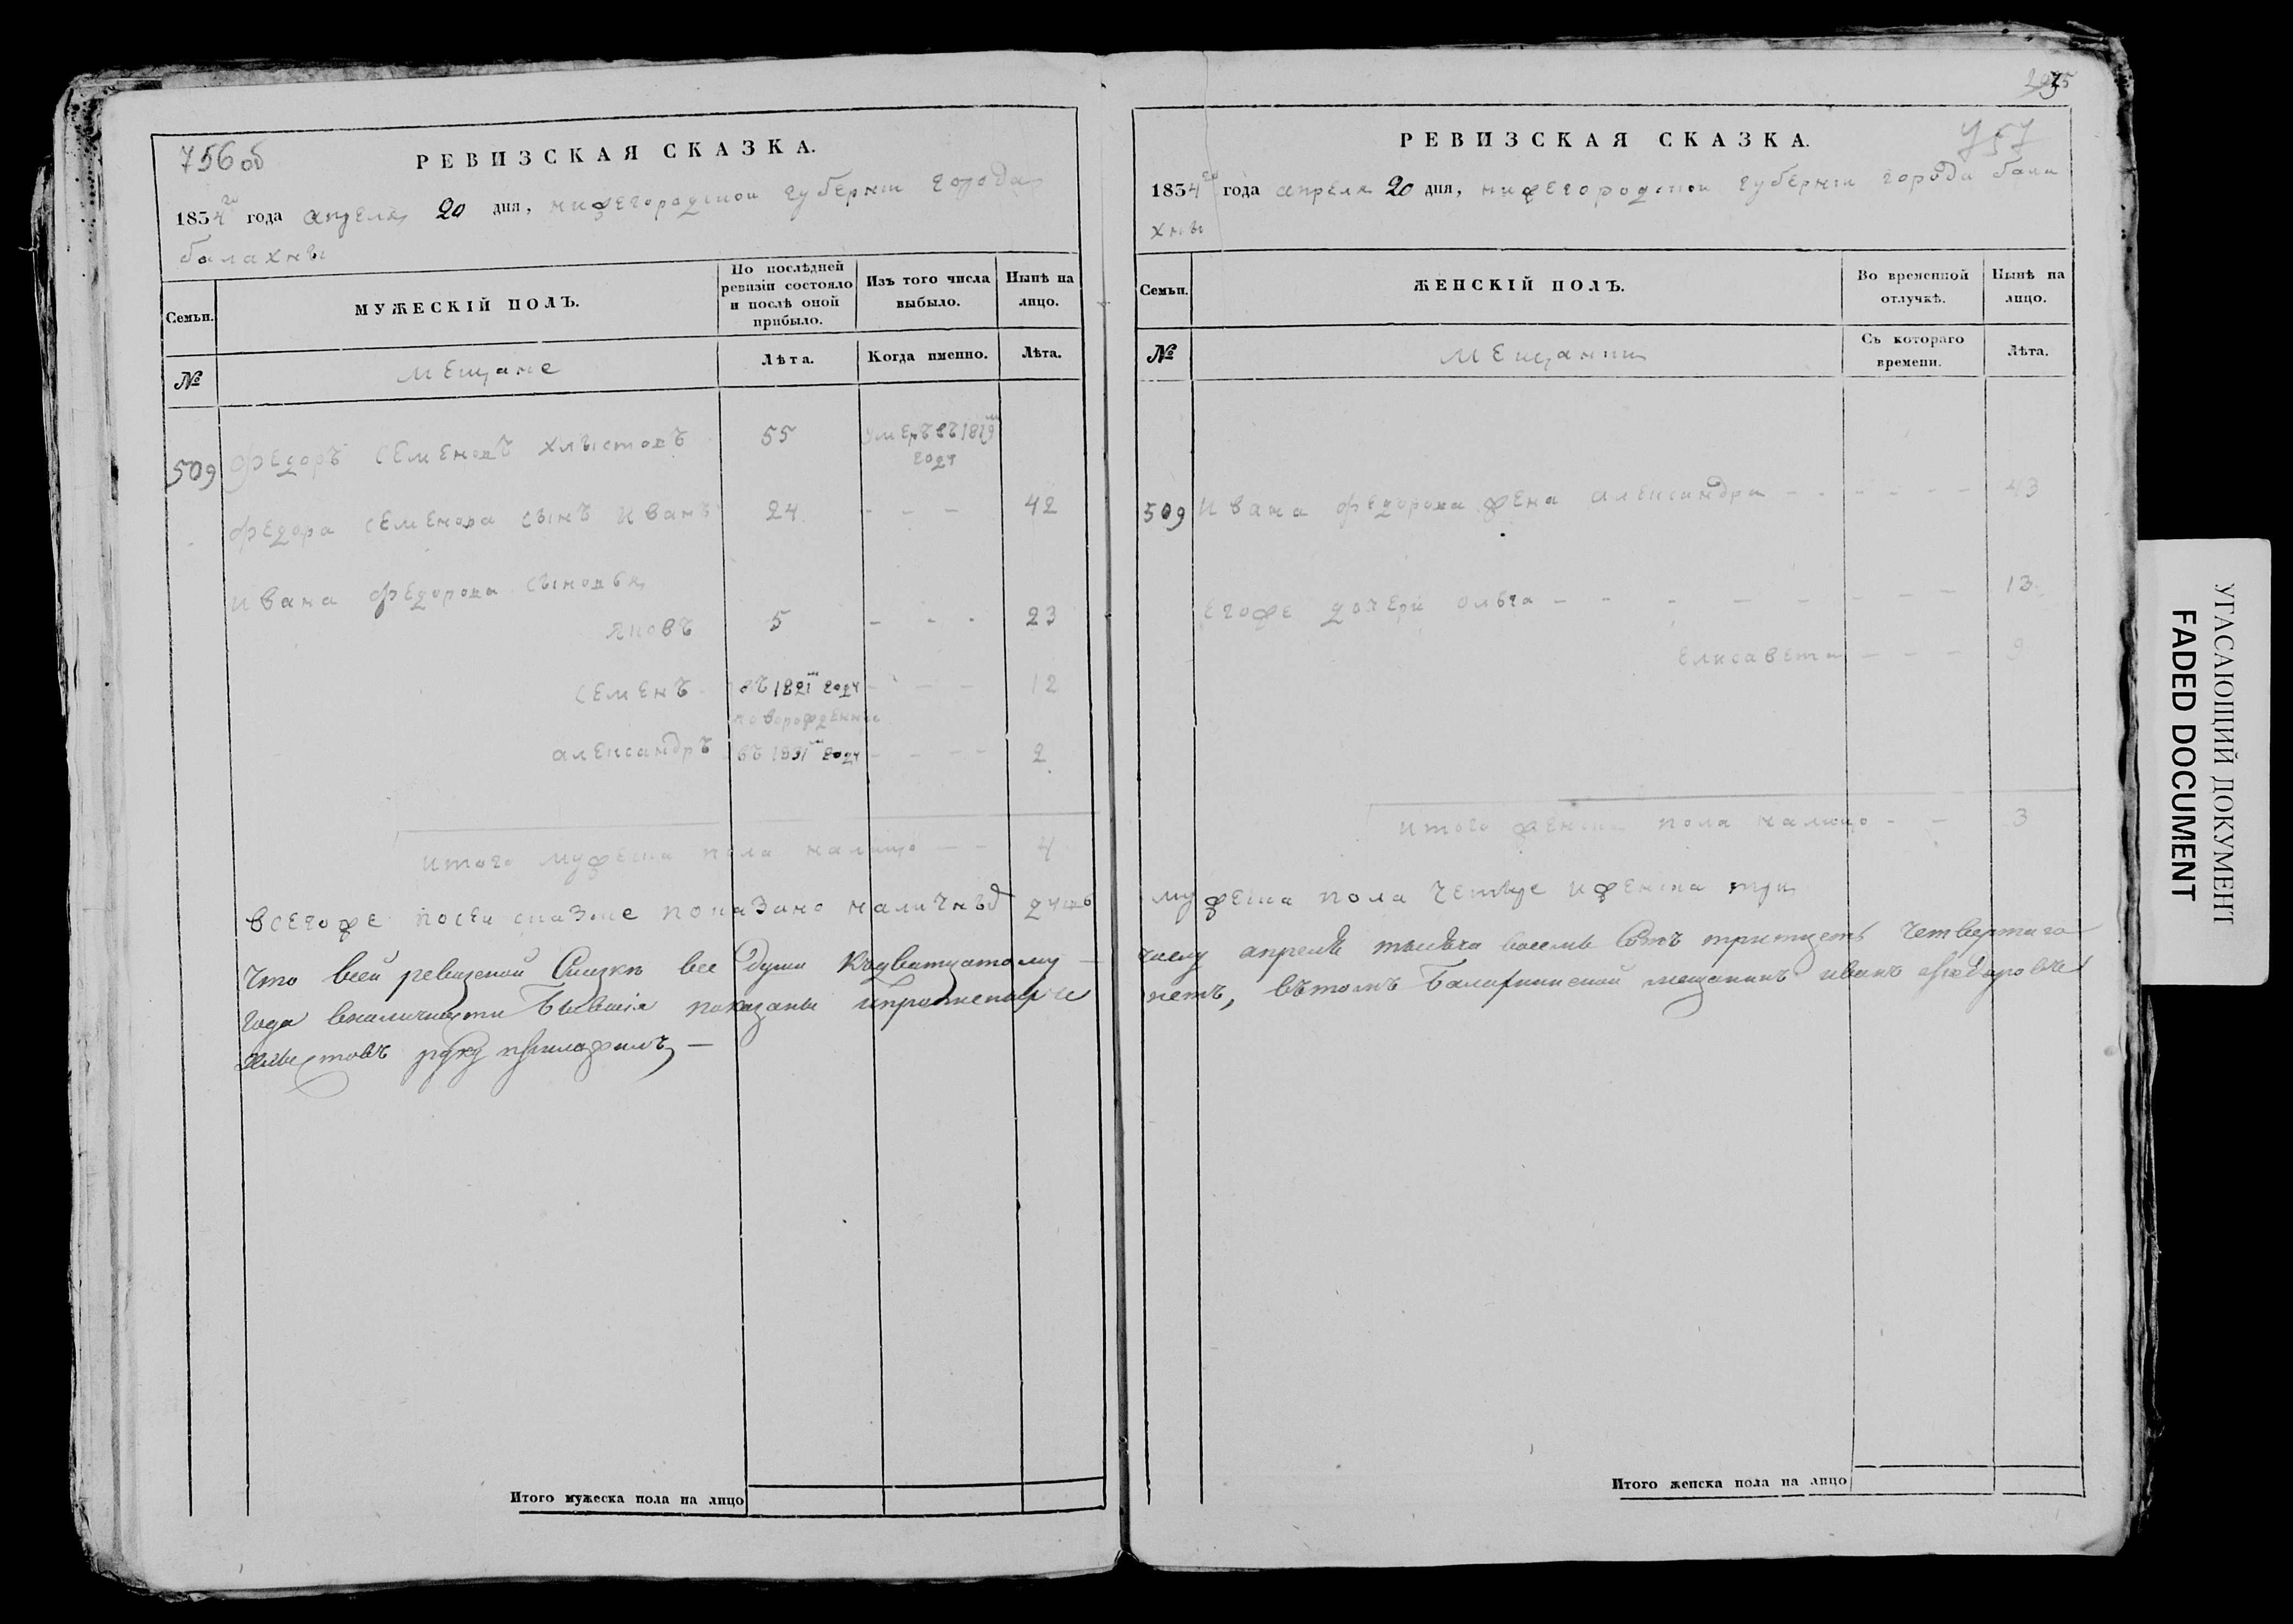 756 об
РЕВИЗСКАЯ СКАЗКА.
1834го года апреля 20 дня, нижегородской губернии города
балахны
Семьи.
МУЖЕСКІЙ ПОЛЪ.
По послѣдней ревизіи состояло и послѣ оной прибыло.
Изъ того числа выбыло.
Нынѣ на лицо.
№
мещане
Лѣта.
Когда именно.
Лѣта.
509 Федоръ Семеновъ Хлыстовъ 55 умеръ въ 1829м году
Федора Семенова сынъ Иванъ 24 - - - 42
Ивана Федорова сыновья
Яковъ 5 - - - 23
Семенъ въ 1821м году - - - 12
новорожденные
александръ въ 1831м году - - - - 2
итого мужеска пола налицо - - 4
всегоже посеи сказке показано наличныхъ душъ
что всей ревизской Сказке все души къдватцатому
года вналичности бывшія показаны ипрописныхъ
Хлыстовъ руку приложилъ —
Итого мужеска пола на лицо
2075
757
РЕВИЗСКАЯ СКАЗКА.
1834го года апреля 20 дня, нижегородской губернии города бала
хны
Семьи.
ЖЕНСКІЙ ПОЛЪ.
Во временной отлучкѣ.
Нынѣ на лицо.
№
мещанки
Съ котораго времени.
Лѣта.
509 Ивана Федорова жена александра - - - - - - 43
егоже дочери ольга - - - - - - - - 13
елисавета - - - 9
итого женска пола налицо - - 3
мужеска пола четыре иженска три
числу апреля тысяча восемь Сотъ тритцать четвертаго
нетъ, вътомъ балахнинской мещанинъ иванъ Федоровъ
Итого женска пола на лицо
УГАСАЮЩИЙ ДОКУМЕНТ
FADED DOCUMENT